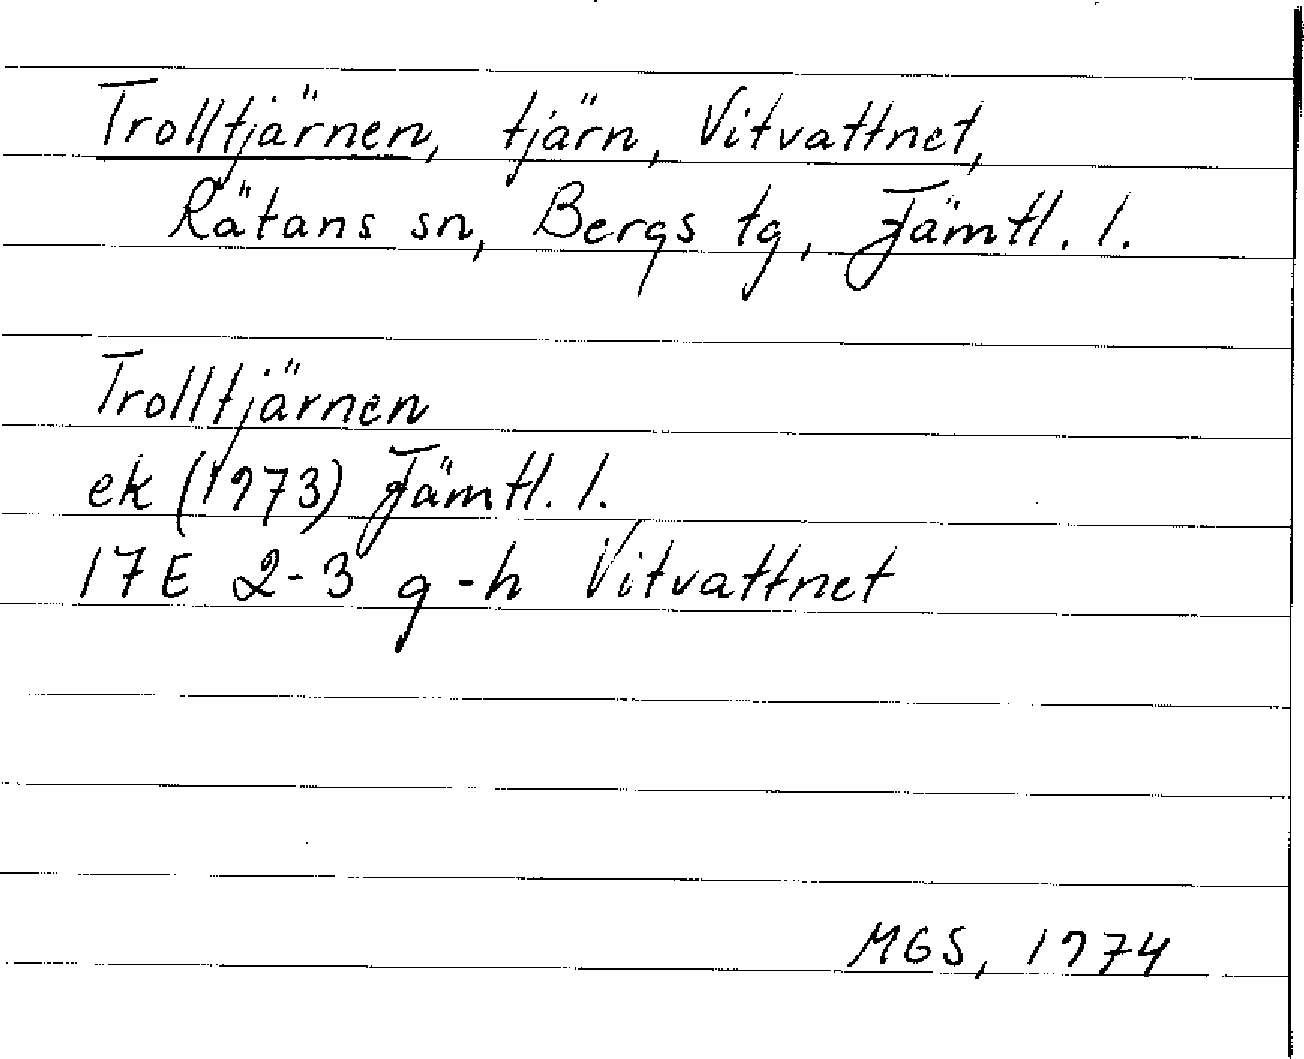 Trolltjärnen, tjärn, Vitvattnet,
Rätans sn, Bergs tg, Jämtl. l.
Trolltjärnen
ek (1973) Jämtl. l.
17E 2-3 g-h Vitvattnet
MGS, 1974